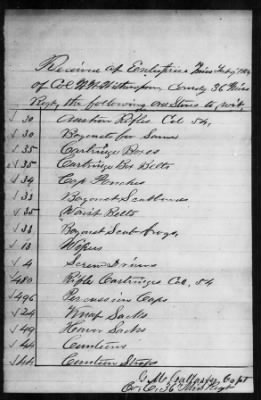 Received at Enterprise Miss Feby
of Col W W Witherspoon Comdg 36 Miss
Regt the following ord Stores to wit,
√ 30 Austrian Rifles Cal 54,
√ 30 Bayonets for Same
√ 35 Cartridge Boxes
√ 35 Cartridge Box Belts
√ 34 Cap Pouches
√ 33 Bayonet Scabbards
√ 35 Waist Belts
√ 33 Bayonet Scab frogs
√ 13 Wipers
√ 4 Screw Drivers
√ 480 Rifle Cartridges Cal, 54
√ 496 Percussion Caps
√ 24 Knap Sacks
√ 49 Haver Sacks
√ 44 Canteens
√ 44 Canteen Straps
Capt
Co. C, 36 Miss Regt